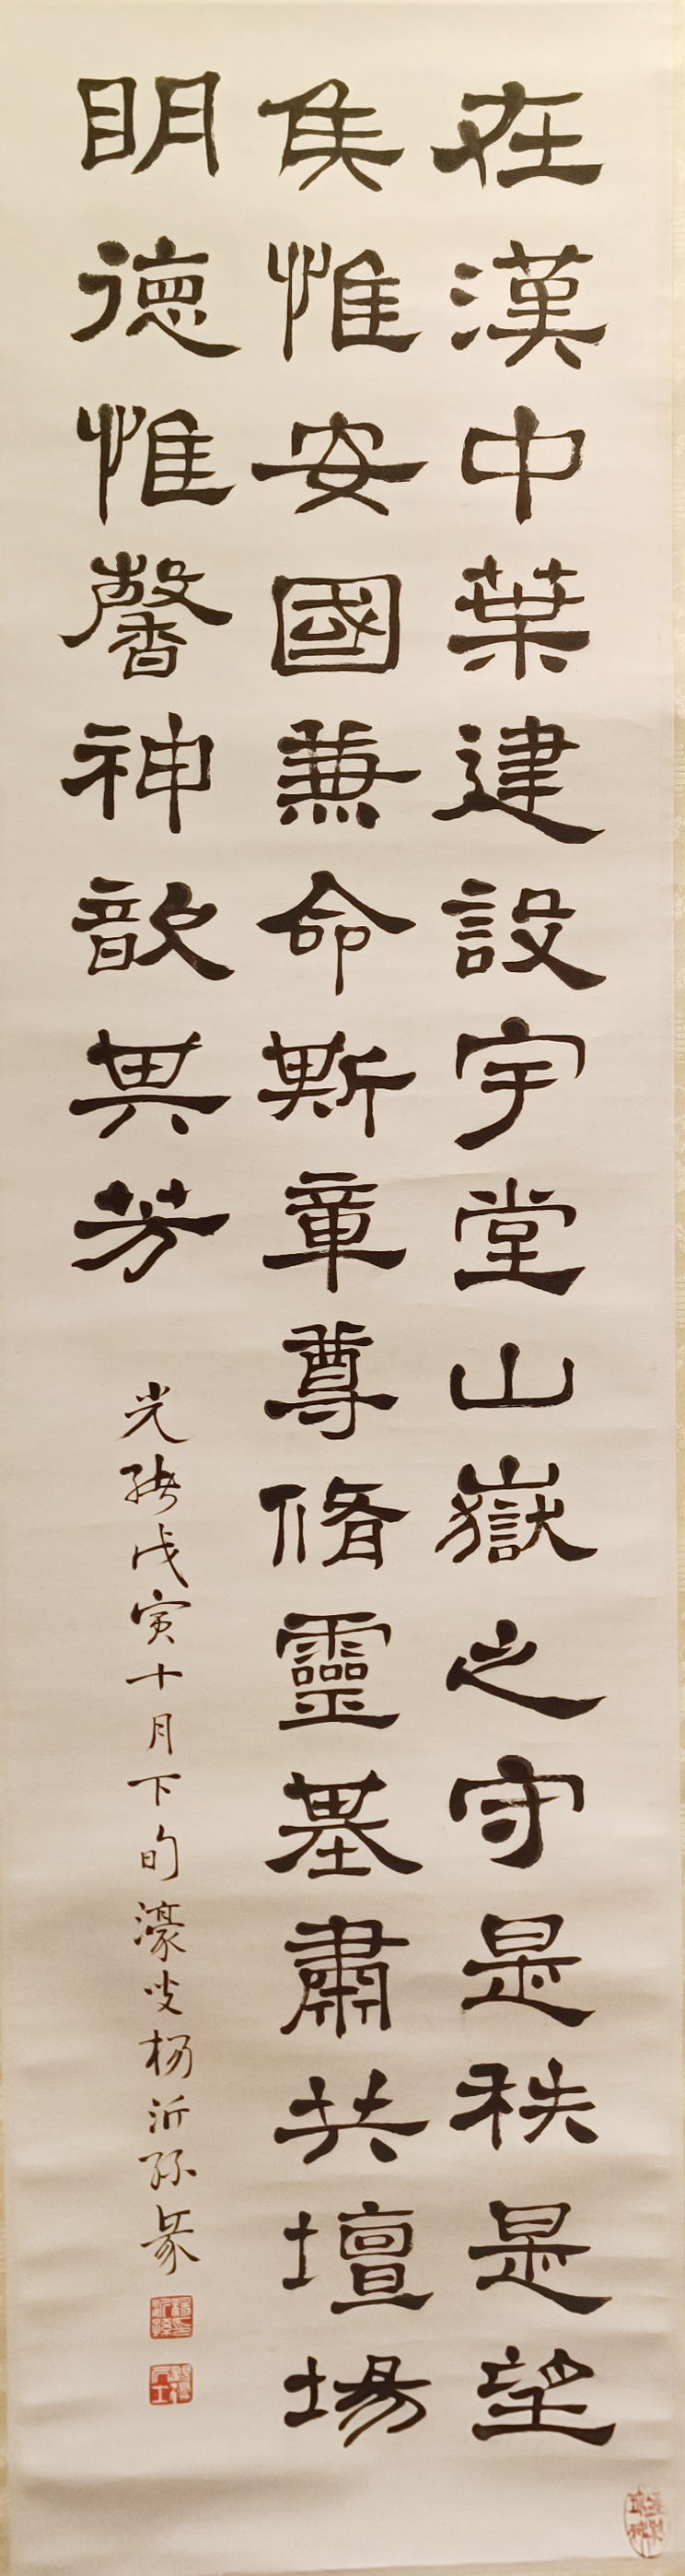 在漢中葉建設宇堂山嶽之守是秩是望
侯惟安國兼命斯章尊脩靈基肅共壇場
明德惟馨神歆其芳
光緒戊寅十月下旬濠叟楊沂孫篆